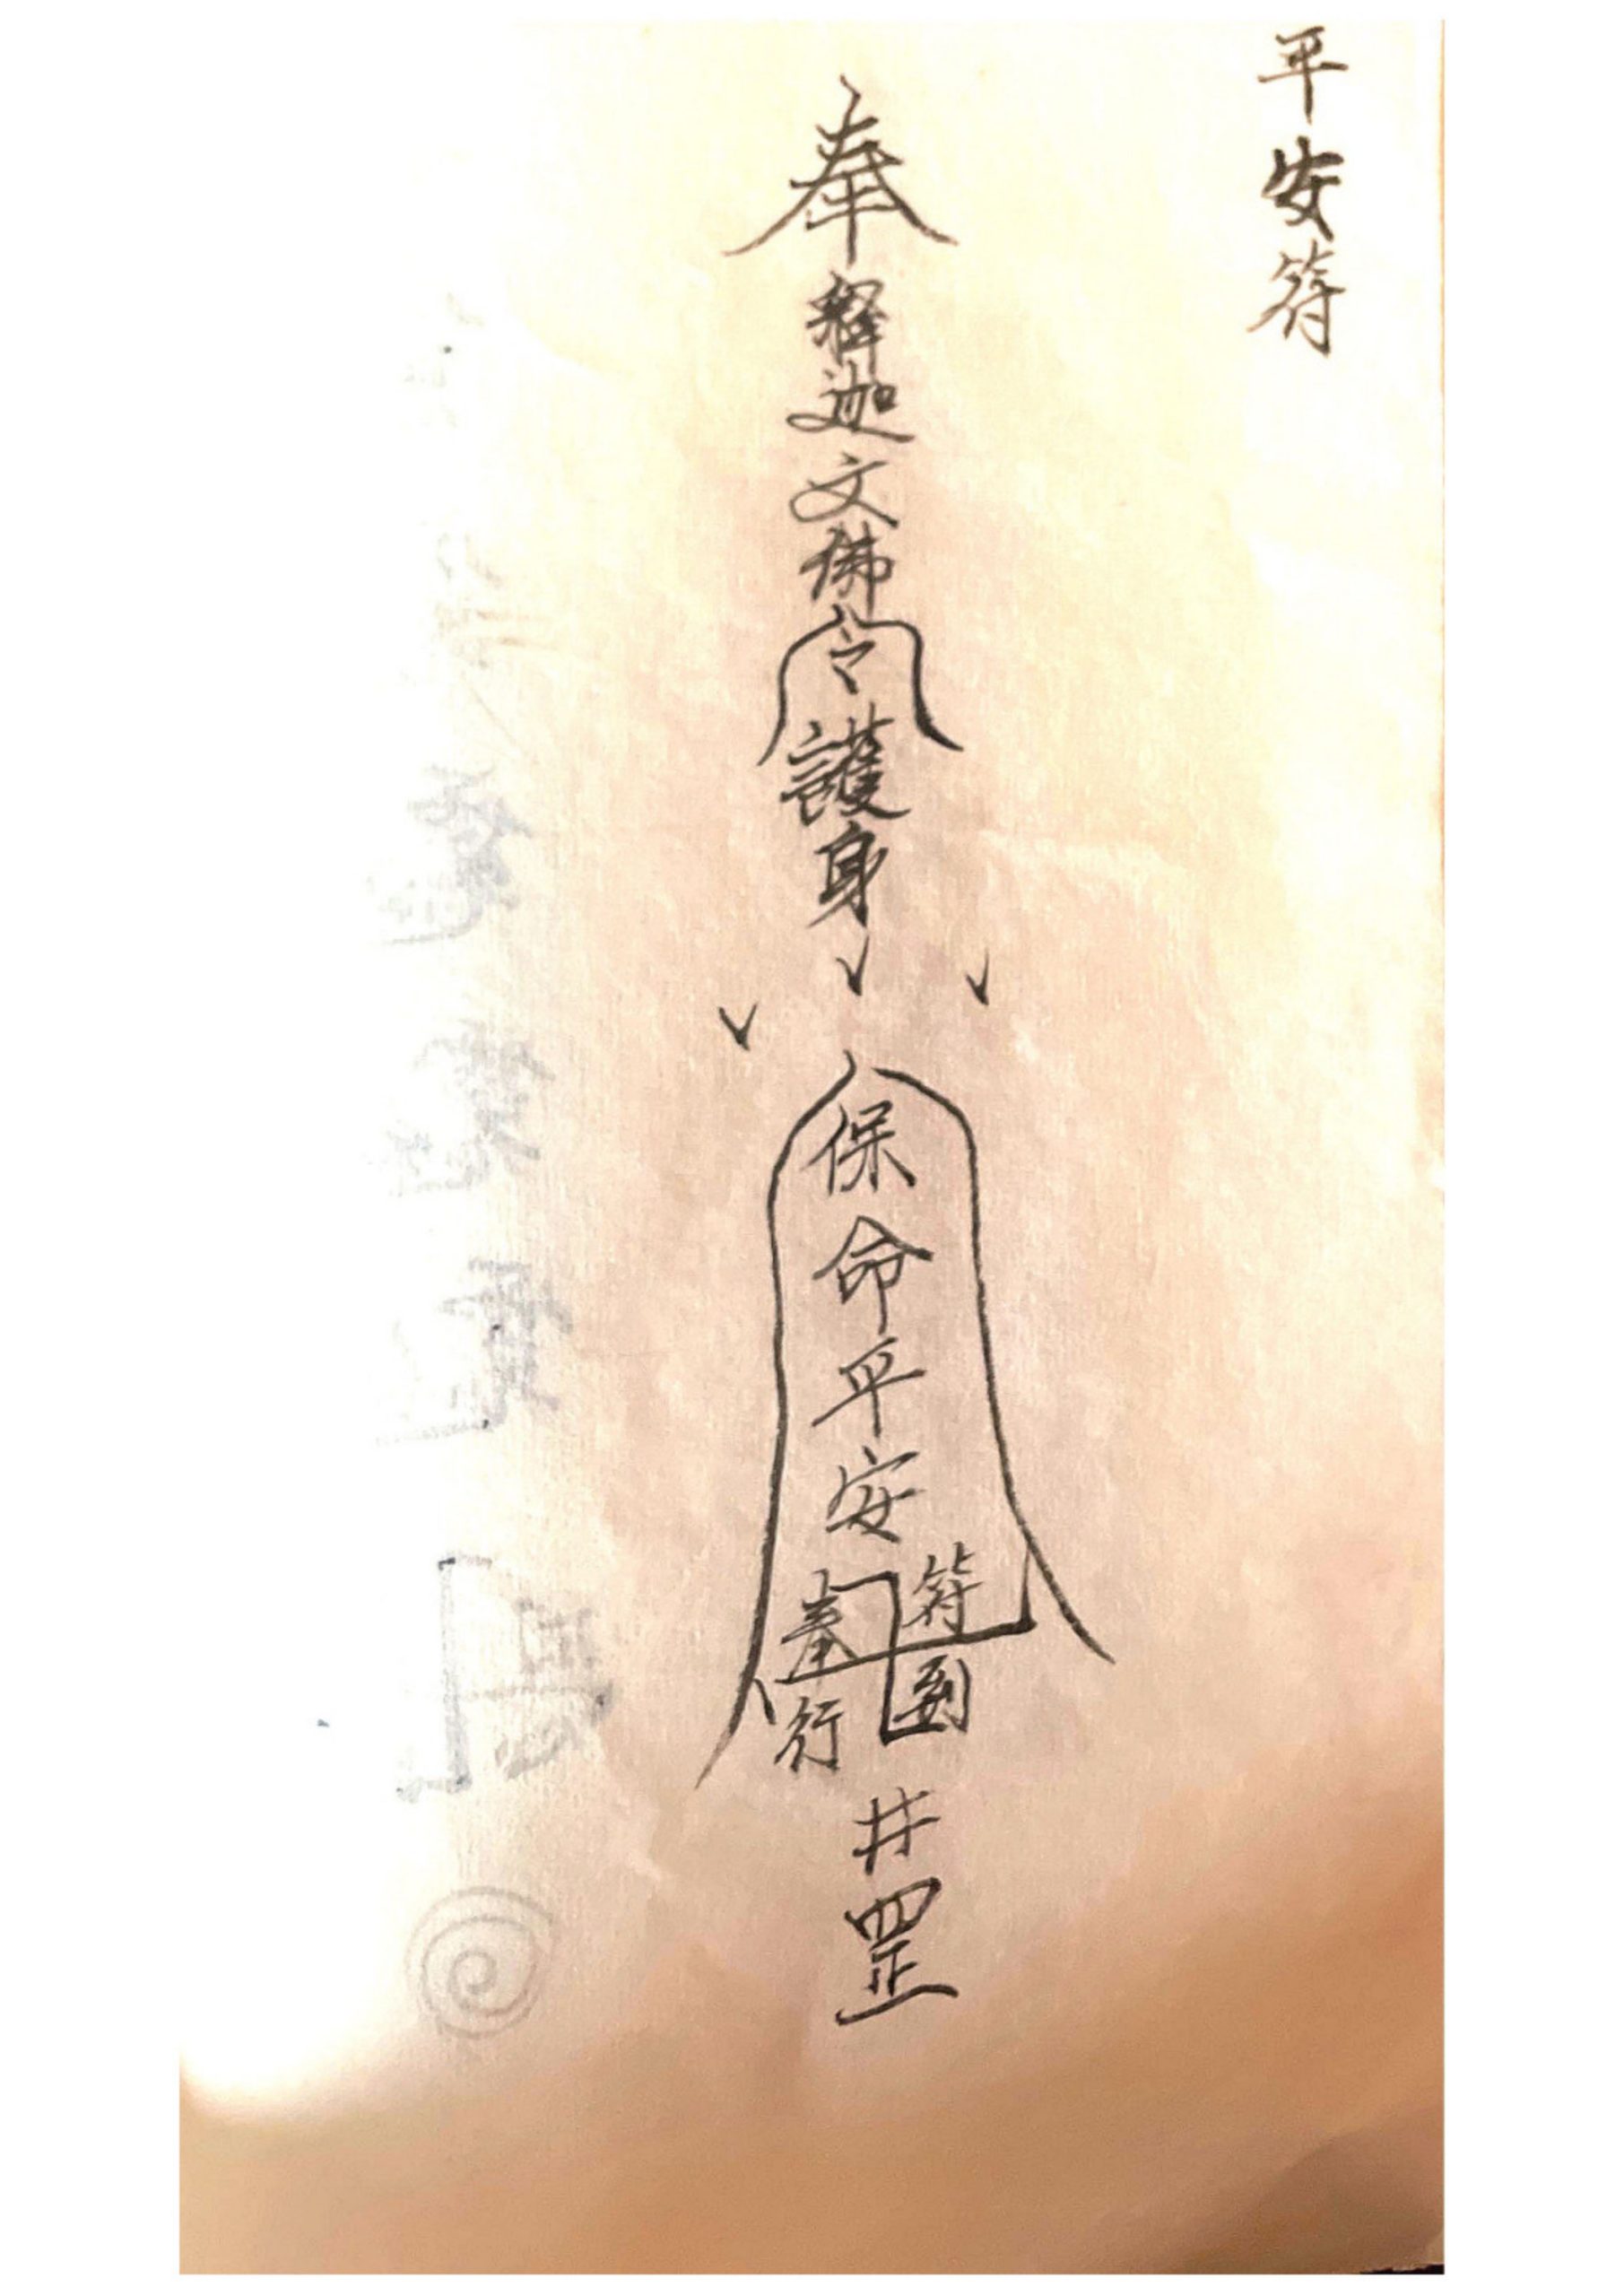 平安符
奉釋迦文佛令護身
保命平安
符到
奉行
井罡